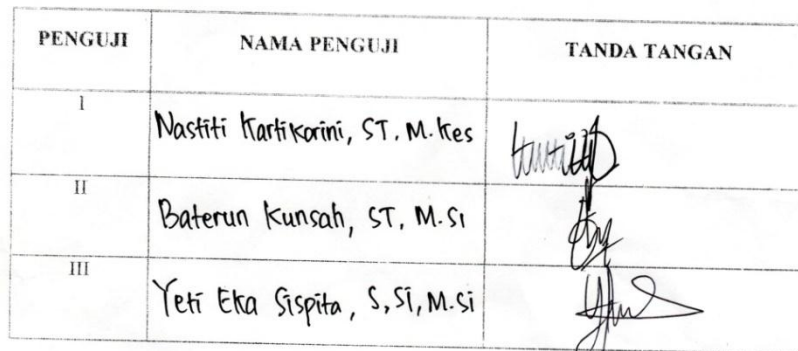 PENGUJI NAMA PENGUJI TANDA TANGAN
I Nastiti Kartikorini, ST. M. Kes
II Baterun Kunsah, ST, M.Si
III Yeti Eka Sispita, S,Si, M.Si